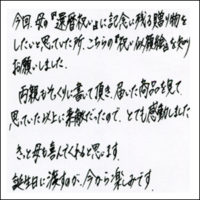 今回、母の『還暦祝い』に記念に残る贈り物を
したいと思っていた所、こちらの『祝い似顔絵』を知り
お願いしました。
両親がむくに書いて頂き、届いた商品を見て
思っていた以上に素敵だったので、とても感動しました
きっと母も喜んでくれると思います。
誕生日に渡すのが、今から楽しみです。